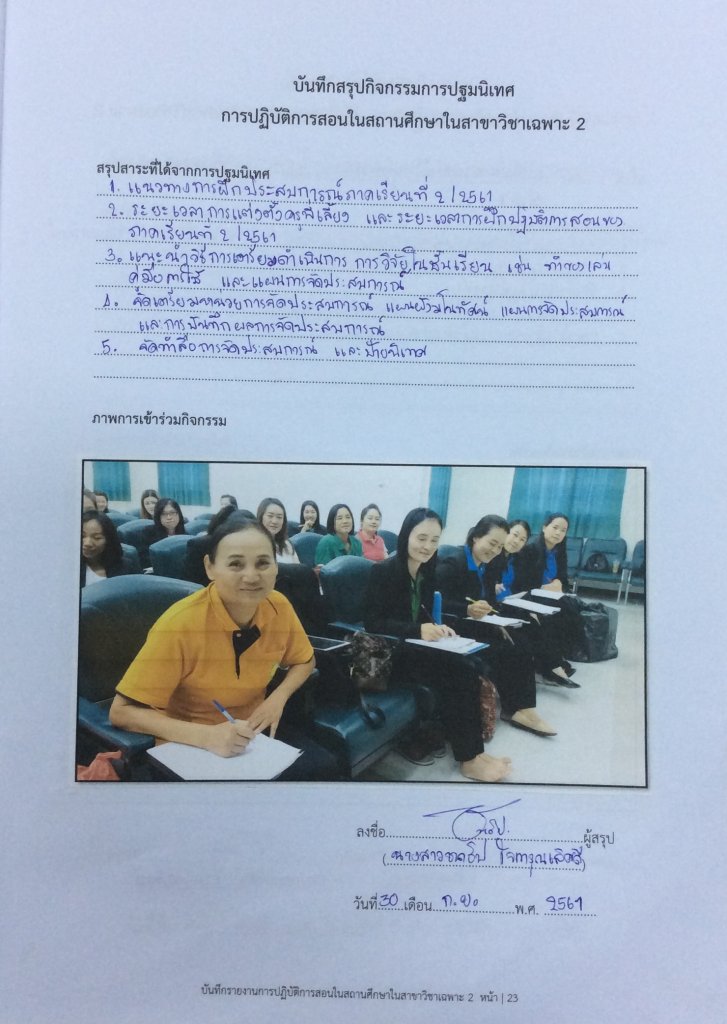 บันทึกสรุปกิจกรรมการปฐมนิเทศ
การปฏิบัติการสอนในสถานศึกษาในสาขาวิชาเฉพาะ 2
สรุปสาระที่ได้จากการปฐมนิเทศ
1. แนวทางการฝึกประสบการณ์ภาคเรียนที่ 2/2561
2. ระยะเวลาการแต่งตั้งครูพี่เลี้ยง และระยะเวลาการฝึกปฏิบัติการสอนของ
ภาคเรียนที่ 2/2561
3. แนะนำวิธีการเตรียมดำเนินการ การวิจัยในชั้นเรียน เช่น ทำของเล่น
คู่มือการใช้ และแผนการจัดประสบการณ์
4. จัดเตรียมหน่วยการจัดประสบการณ์ แผนผังมโนทัศน์ แผนการจัดประสบการณ์
และการบันทึกผลการจัดประสบการณ์
5. จัดทำสื่อการจัดประสบการณ์ และป้ายนิเทศ
ภาพการเข้าร่วมกิจกรรม
ลงชื่อ ผู้สรุป
(นางสาว)
วันที่ 30 เดือน ก.ย. พ.ศ. 2561
บันทึกรายงานการปฏิบัติการสอนในสถานศึกษาในสาขาวิชาเฉพาะ 2 หน้า | 23